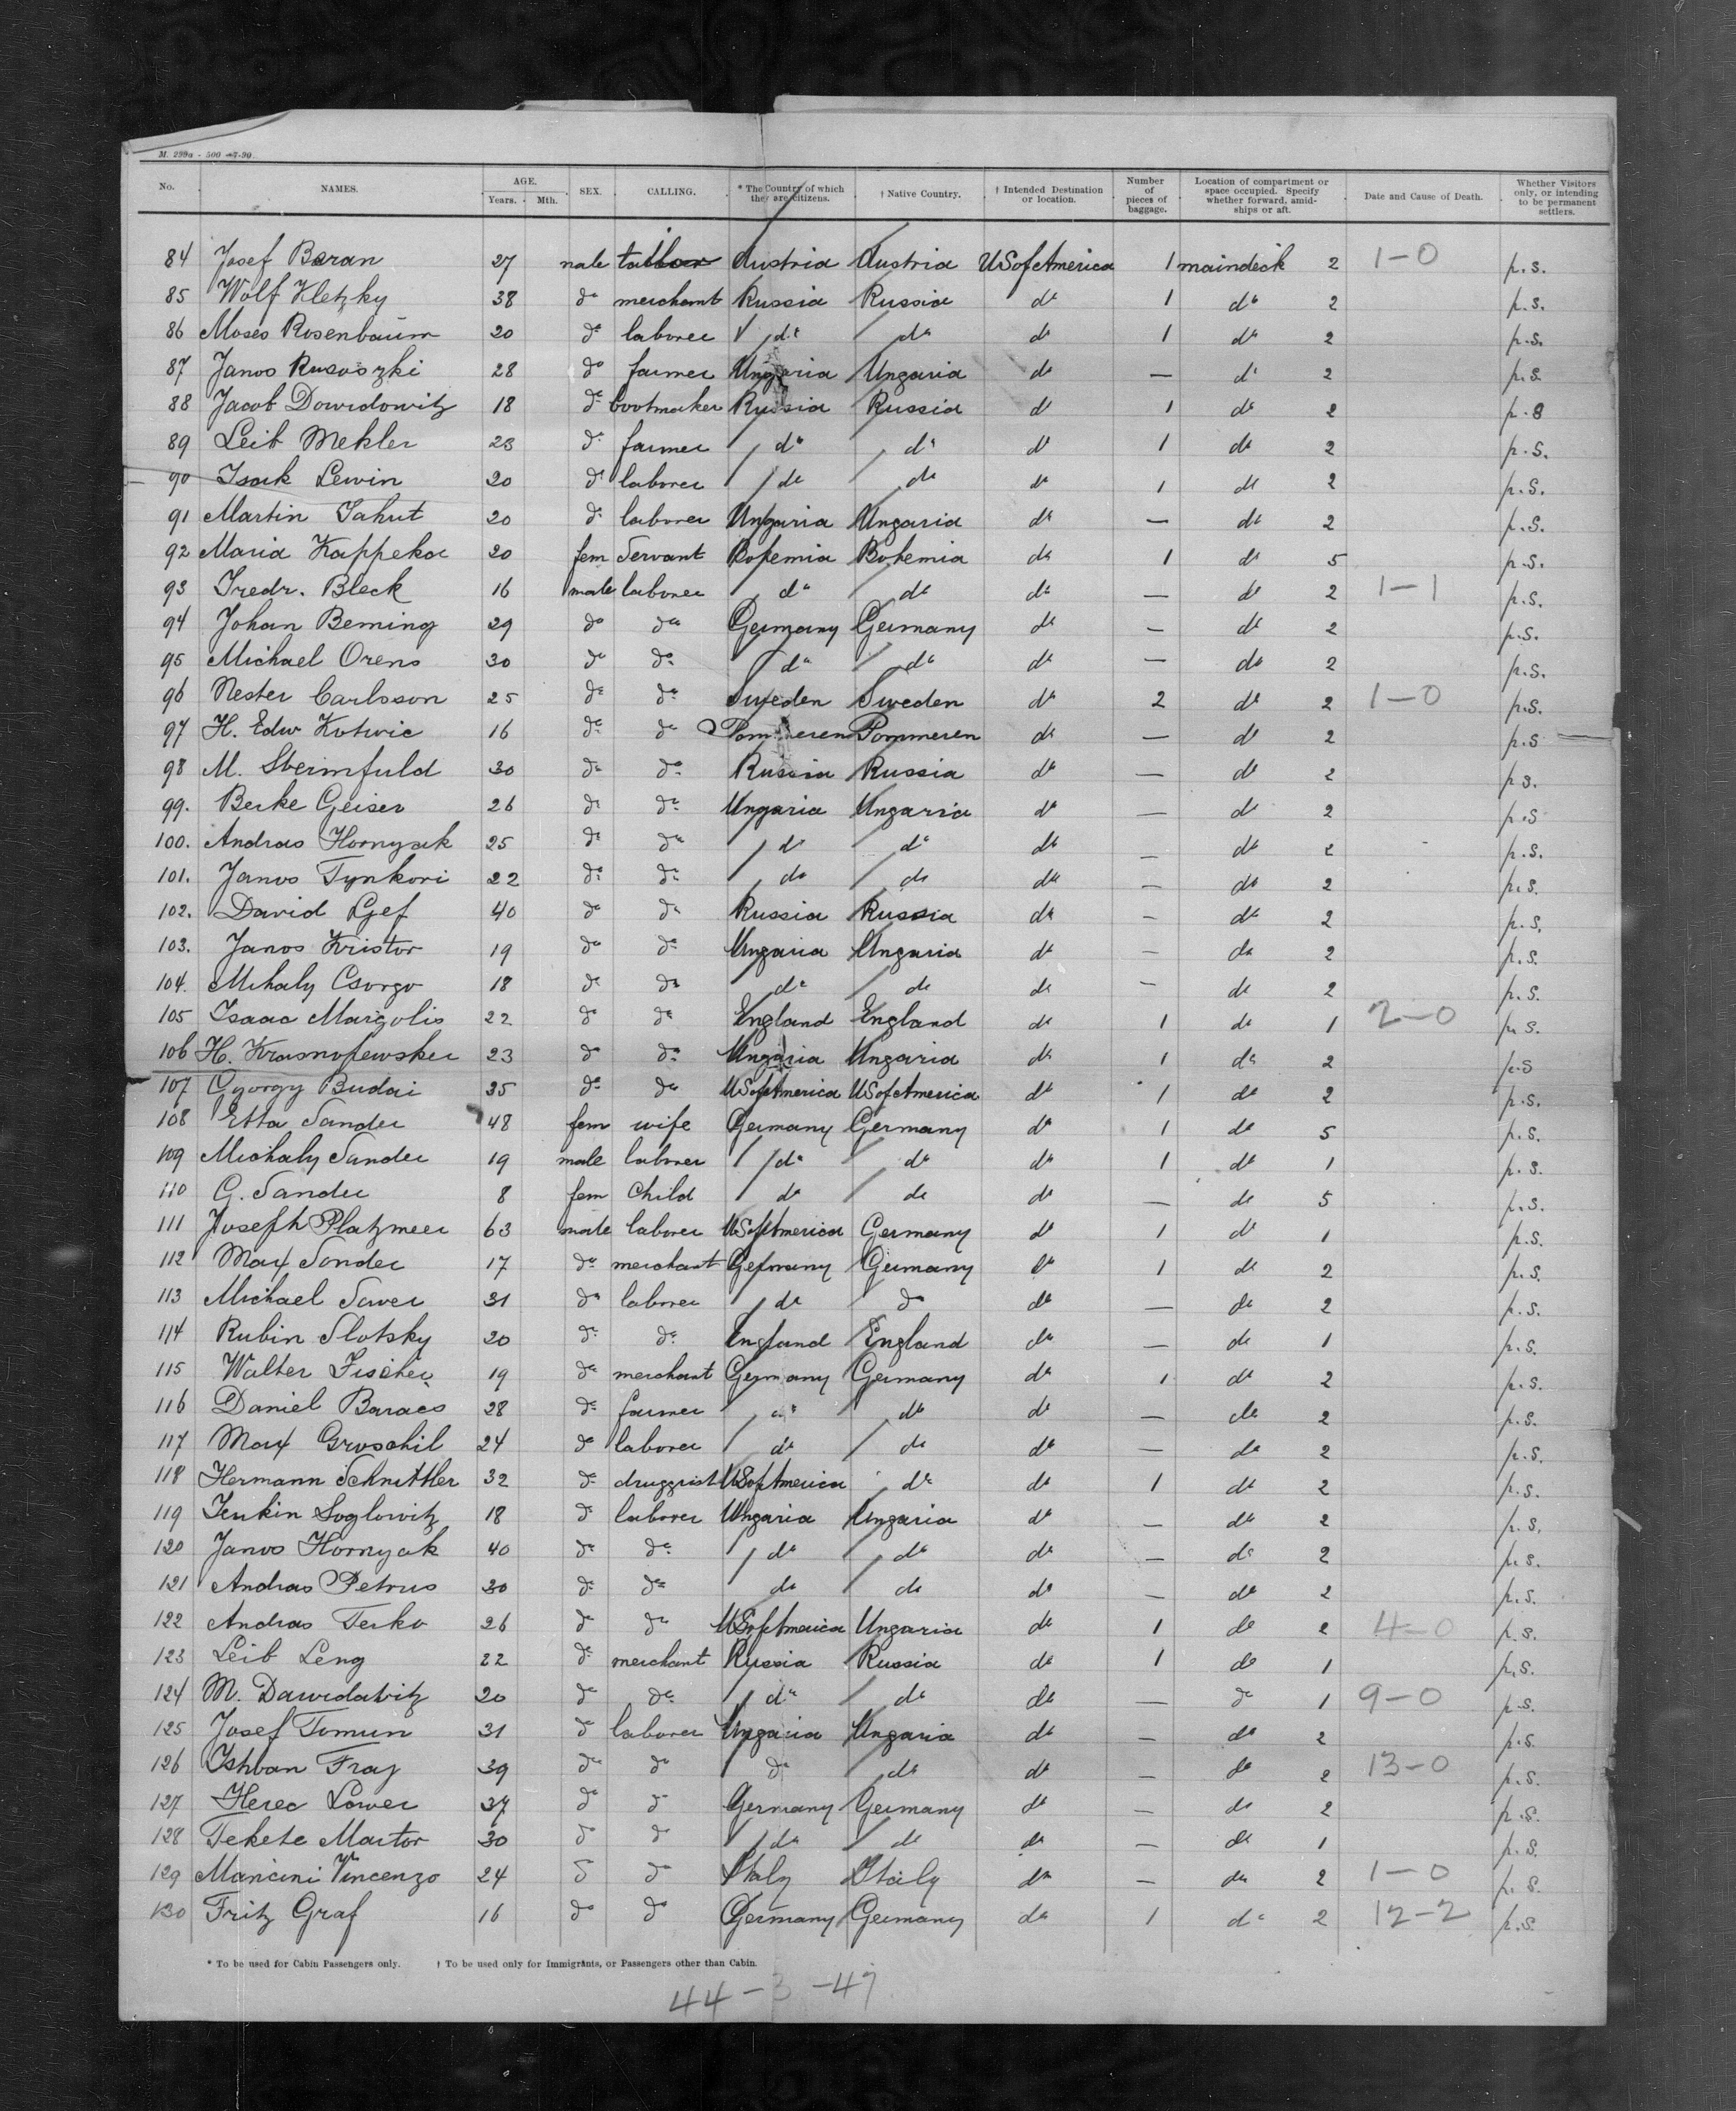 M. 299a - 500 - 7-90
No. NAMES. AGE. Years. Mth. SEX. CALLING. * The Country of which they are citizens. † Native Country. † Intended Destination or location. Number of pieces of baggage. Location of compartment or space occupied. Specify whether forward, amidships or aft. Date and Cause of Death. Whether Visitors only, or intending to be permanent settlers.
84 Josef Baran 27 male tailor Austria Austria US of America 1 maindeck 2 1-0 p.s.
85 Wolf Kletzky 38 do merchant Russia Russia do 1 do 2 p.s.
86 Moses Rosenbaum 20 do laborer do do do 1 do 2 p.s.
87 Janos Rusoszki 28 do farmer Ungaria Ungaria do — do 2 p.s.
88 Jacob Dowidowitz 18 do bootmaker Russia Russia do 1 do 2 p.s
89 Leib Mekler 23 do farmer do do do 1 do 2 p.s.
90 Isak Lewin 20 do laborer do do do 1 do 2 p.s.
91 Martin Jahut 20 do laborer Ungaria Ungaria do — do 2 p.s.
92 Maria Kappekoe 20 fem Servant Bohemia Bohemia do 1 do 5 p.s.
93 Fredr. Bleck 16 male laborer do do do — do 2 1-1 p.s.
94 Johan Beming 29 do do Germany Germany do — do 2 p.s.
95 Michael Orens 30 do do do do do — do 2 p.s.
96 Nester Carlsson 25 do do Sweden Sweden do 2 do 2 1-0 p.s.
97 H. Edw Kotwic 16 do do Pommeren Pommeren do — do 2 p.s
98 M. Sterinfuld 30 do do Russia Russia do — do 2 p.s.
99. Berke Geiser 26 do do Ungaria Ungaria do — do 2 p.s
100. Andras Hornyak 25 do do do do do — do 2 p.s.
101. Janos Tynkori 22 do do do do do — do 2 p.s.
102. David Lgef 40 do do Russia Russia do — do 2 p.s.
103. Janos Kristor 19 do do Ungaria Ungaria do — do 2 p.s.
104. Mihaly Csorgo 18 do do do do do — do 2 p.s.
105 Isaac Margolis 22 do do England England do 1 do 1 2-0 p.s.
106 H. Krasnopewsker 23 do do Ungaria Ungaria do 1 do 2 p.s
107 Gyorgy Budai 35 do do US of America US of America do 1 do 2 p.s.
108 Etta Sander 48 fem wife Germany Germany do 1 do 5 p.s.
109 Michaly Sander 19 male laborer do do do 1 do 1 p.s.
110 G. Sander 8 fem Child do do do — do 5 p.s.
111 Joseph Platzmeer 63 male laborer US of America Germany do 1 do 1 p.s.
112 Max Sonder 17 do merchant Germany Germany do 1 do 2 p.s.
113 Michael Sawer 31 do laborer do do do — do 2 p.s.
114 Rubin Slotsky 20 do do England England do — do 1 p.s.
115 Walter Fischer 19 do merchant Germany Germany do 1 do 2 p.s.
116 Daniel Baracs 28 do farmer do do do — do 2 p.s.
117 Max Groschil 24 do laborer do do do — do 2 p.s.
118 Hermann Schnittler 32 do druggist US of America do do 1 do 2 p.s.
119 Jenkin Soglowitz 18 do laborer Ungaria Ungaria do — do 2 p.s.
120 Janos Hornyak 40 do do do do do — do 2 p.s.
121 Andras Petrus 30 do do do do do — do 2 p.s.
122 Andras Terko 26 do do US of America Ungaria do 1 do 2 4-0 p.s.
123 Leib Leng 22 do merchant Russia Russia do 1 do 1 p.s.
124 M. Dawidabitz 20 do do do do do — do 1 9-0 p.s.
125 Josef Tomun 31 do laborer Ungaria Ungaria do — do 2 p.s.
126 Istvan Fray 39 do do do do do — do 2 13-0 p.s.
127 Herec Lower 37 do do Germany Germany do — do 2 p.s.
128 Tekete Martor 30 do do do do do — do 1 p.s.
129 Mancini Vincenzo 24 do do Italy Italy do — do 2 1-0 p.s.
130 Fritz Graf 16 do do Germany Germany do 1 do 2 12-2 p.s.
* To be used for Cabin Passengers only. † To be used only for Immigrants, or Passengers other than Cabin.
44-3-47